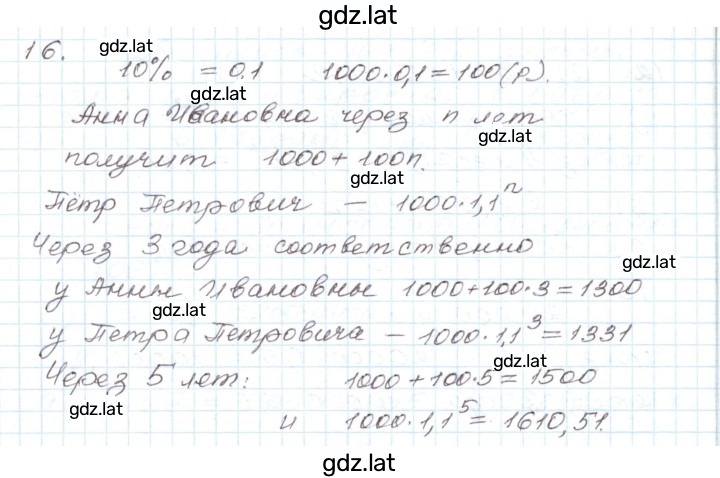 gdz.lat
16. gdz.lat
10% = 0,1 1000·0,1 = 100(р).
gdz.lat
Анна Ивановна через n лет
gdz.lat
получит 1000 + 100n.
gdz.lat
Пётр Петрович — 1000·1,1ⁿ
Через 3 года соответственно
gdz.lat
у Анны Ивановны 1000+100·3 = 1300
gdz.lat
у Петра Петровича — 1000·1,1³ = 1331
gdz.lat
Через 5 лет: 1000 + 100·5 = 1500
gdz.lat
и 1000·1,1⁵ = 1610,51.
gdz.lat